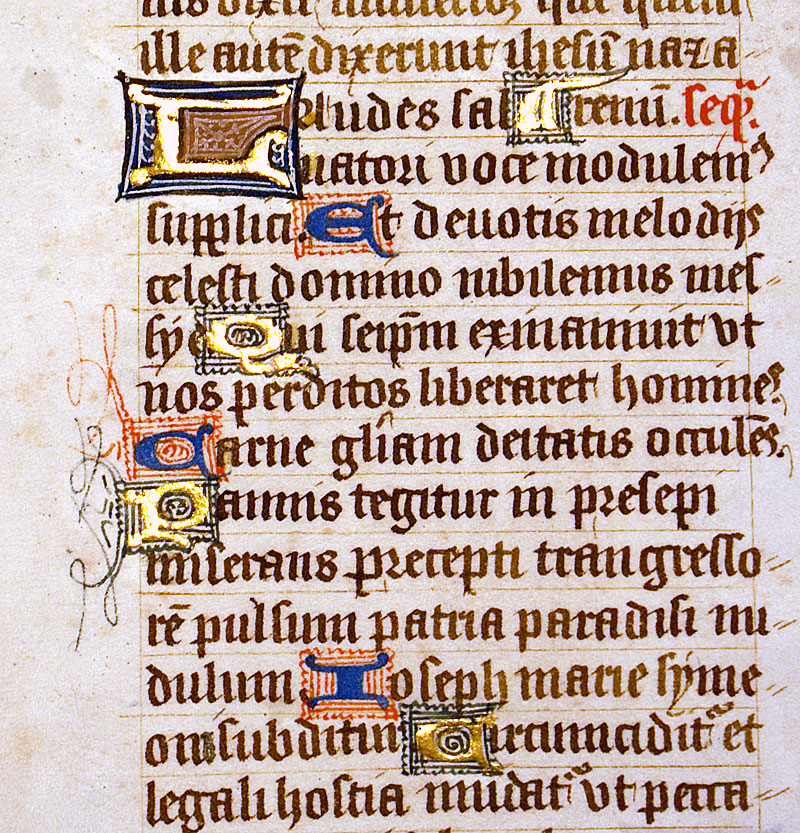 ille autē dixerunt ihesū naza
LAudes sal Trenū. seqͣ.
uatori voce modulemʼ
supplici. Et deuotis melodijs
celesti domino iubilemus mes-
sye Qui seipm exinaniuit vt
nos perditos liberaret homines.
Carne gliam deitatis occulēs.
Pannis tegitur in presepi
miserans precepti trangresso-
rē pulsum patria paradisi nu-
dulum. Ioseph marie syme-
oni subditur Circumcidit᷑ et
legali hostia mūdat᷑ vt pecca-